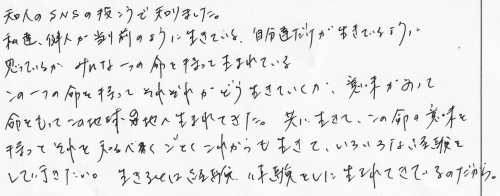 知人のSNSの投こうで知りました。
私達、健人が当り前のように生きている、自分達だけが生きているように
思っているが みんな一つの命を持って生まれている
この一つの命を持って それぞれがどう生きていくか、意味があって
命をもってこの地球 地へ生まれてきた。共に生きて、この命の意味を
持って それを知るべくごとく これからも生きて、いろいろな経験を
して行きたい。 生きるとは経験 体験をしに生まれてきているのだから。